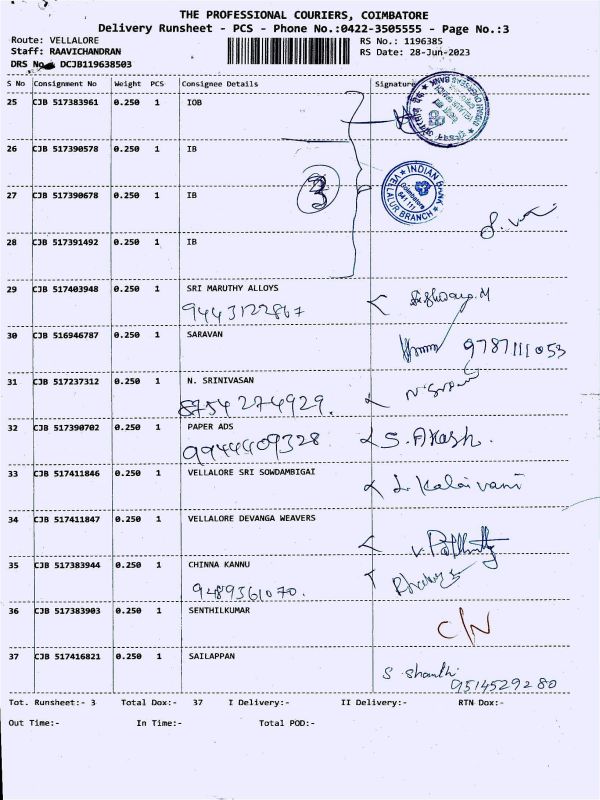 THE PROFESSIONAL COURIERS, COIMBATORE
Delivery Runsheet - PCS - Phone No.:0422-3505555 - Page No.:3
Route: VELLALORE RS No.: 1196385
Staff: RAAVICHANDRAN RS Date: 28-Jun-2023
DRS No.: DCJB119638503
S No Consignment No Weight PCS Consignee Details Signature
25 CJB 517383961 0.250 1 IOB
26 CJB 517390578 0.250 1 IB
INDIAN BANK
Coimbatore
641 111
VELLALUR BRANCH
3
27 CJB 517390678 0.250 1 IB
28 CJB 517391492 0.250 1 IB
29 CJB 517403948 0.250 1 SRI MARUTHY ALLOYS
9443122867
30 CJB 516946787 0.250 1 SARAVAN
9787111053
31 CJB 517237312 0.250 1 N. SRINIVASAN
8754274929.
32 CJB 517390702 0.250 1 PAPER ADS
9944409328 S. Akash.
33 CJB 517411846 0.250 1 VELLALORE SRI SOWDAMBIGAI
L. Kalaivani
34 CJB 517411847 0.250 1 VELLALORE DEVANGA WEAVERS
35 CJB 517383944 0.250 1 CHINNA KANNU
9489361070.
36 CJB 517383903 0.250 1 SENTHILKUMAR
C/N
37 CJB 517416821 0.250 1 SAILAPPAN
S. Shanthi
9514529280
Tot. Runsheet:- 3 Total Dox:- 37 I Delivery:- II Delivery:- RTN Dox:-
Out Time:- In Time:- Total POD:-